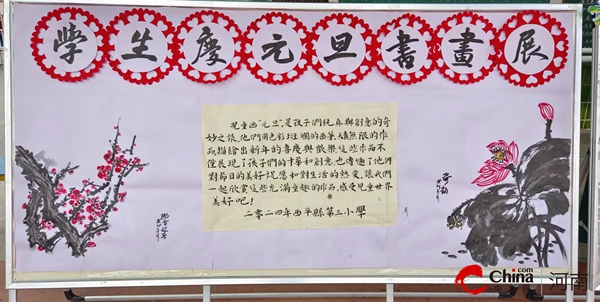 學生慶元旦書畫展
兒童画“元旦”，是孩子們純真與創意的奇
妙之旅，他們用色彩斑斕的画筆，天真無限的作
品描繪出新年的喜慶與歡樂這些作品不
僅展現了孩子們的才華和創意，也傳遞了他們
對節日的美好祝愿和對生活的熱愛，讓我們
一起欣賞這些充滿童趣的作品，感受兒童世界
美好吧！
二零二四年西平縣第三小學
China.com
河南